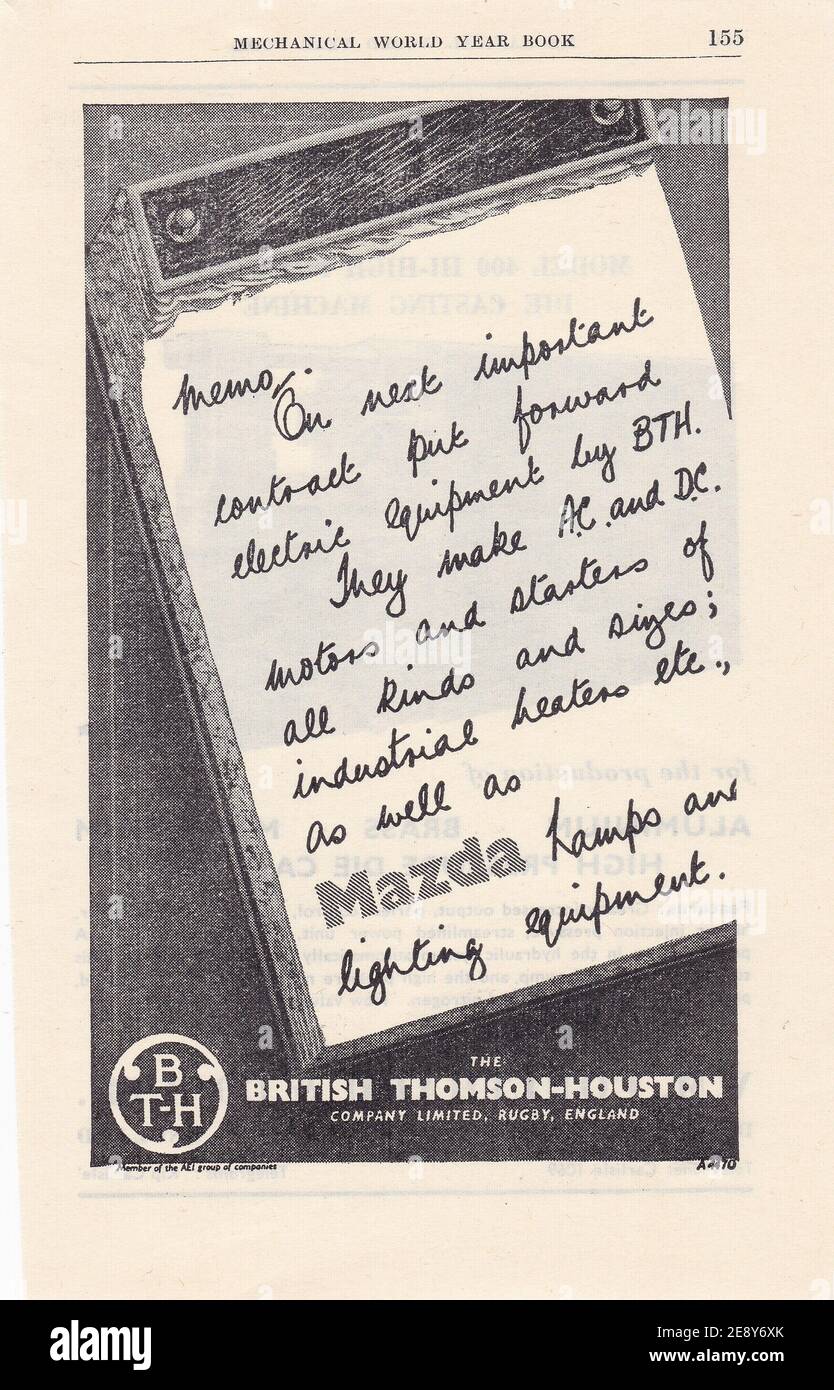 MECHANICAL WORLD YEAR BOOK 155
memo:-
On next important
contract put forward
electric equipment by BTH.
They make A.C. and D.C.
motors and starters of
all kinds and sizes;
industrial heaters etc.,
as well as
Mazda Lamps and
lighting equipment.
B
T-H
THE
BRITISH THOMSON-HOUSTON
COMPANY LIMITED, RUGBY, ENGLAND
Member of the AEI group of companies
alamy
Image ID: 2E8Y6XK
www.alamy.com